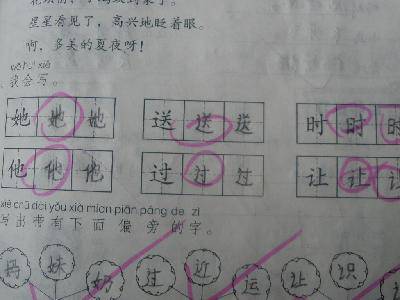 星星看见了，高兴地眨着眼。
啊，多美的夏夜呀！
wǒ huì xiě
我会写。
她 她 她 送 送 送 时 时 时
他 他 他 过 过 过 让 让 让
xiě chū dài yǒu xià miàn piān páng de zì
写出带有下面偏旁的字。
妹 奶 过 近 运 让 识